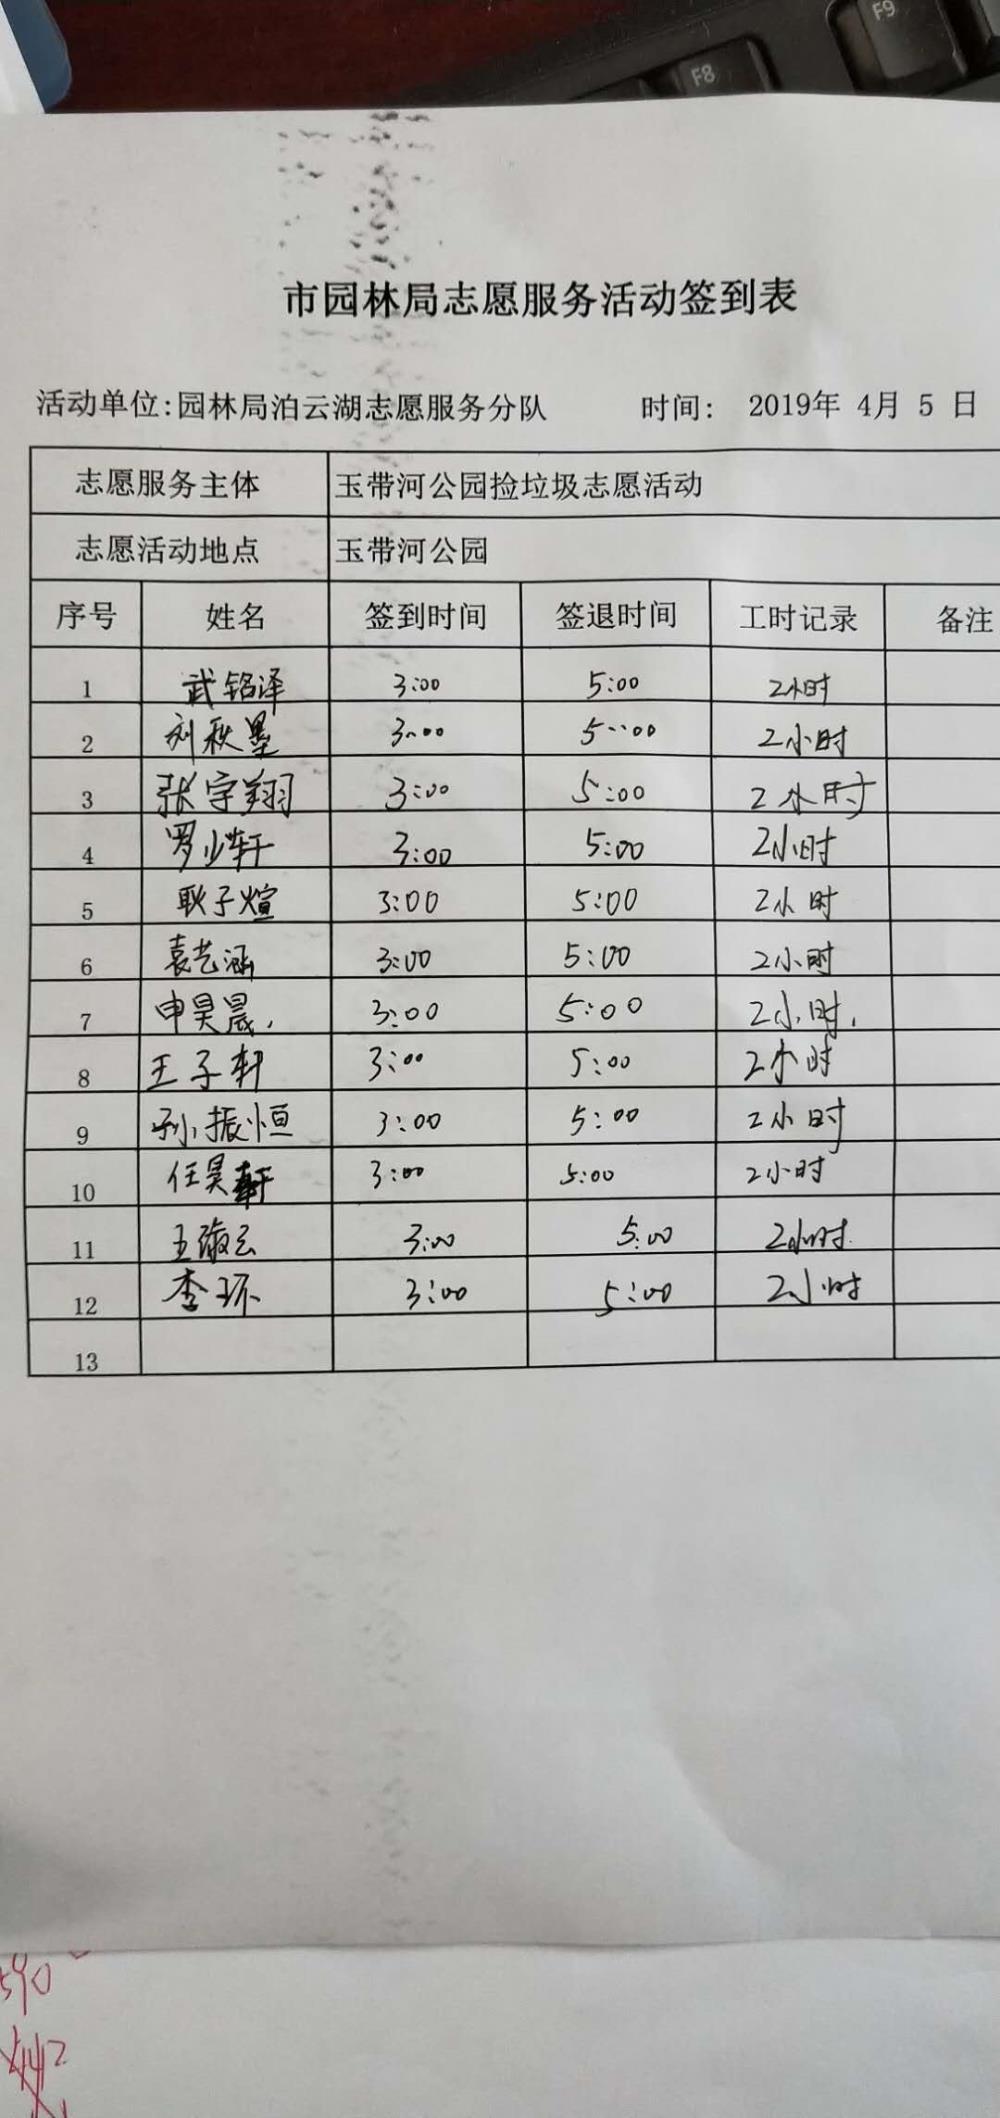 F9
F8
市园林局志愿服务活动签到表
活动单位:园林局泊云湖志愿服务分队 时间: 2019年 4月 5 日
志愿服务主体 玉带河公园捡垃圾志愿活动
志愿活动地点 玉带河公园
序号 姓名 签到时间 签退时间 工时记录 备注
1 武铭泽 3:00 5:00 2小时
2 刘秋墨 3:00 5:00 2小时
3 张宇翔 3:00 5:00 2小时
4 罗少轩 3:00 5:00 2小时
5 耿子煊 3:00 5:00 2小时
6 袁艺涵 3:00 5:00 2小时
7 申昊晟. 3:00 5:00 2小时.
8 王子轩 3:00 5:00 2小时
9 孙振恒 3:00 5:00 2小时
10 任昊轩 3:00 5:00 2小时
11 3:00 5:00 2小时
12 李环 3:00 5:00 2小时
13
590